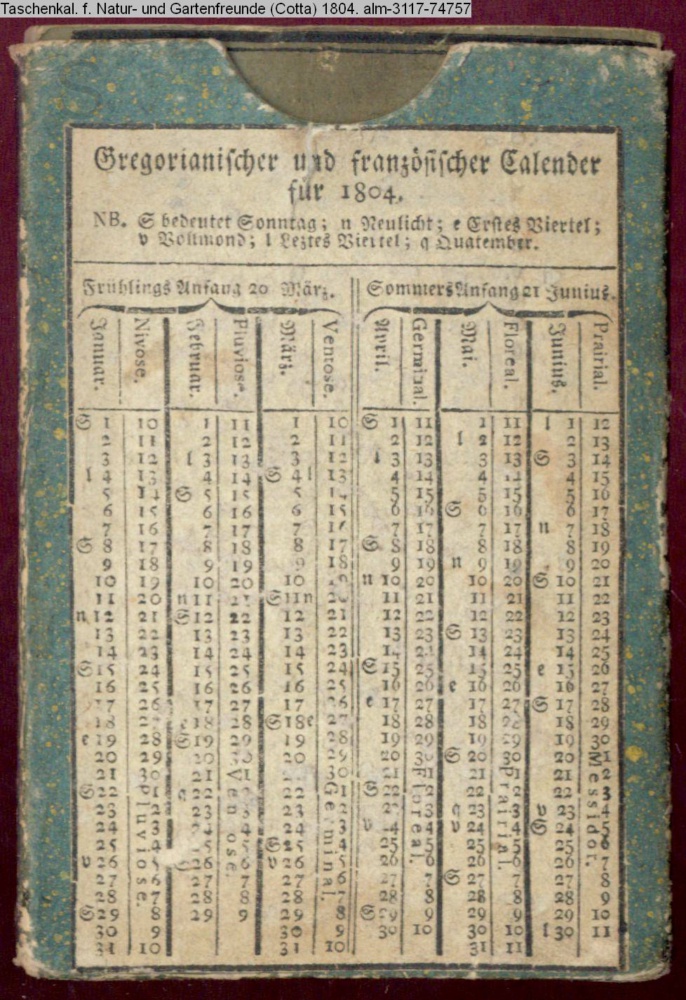 Taschenkal. f. Natur- und Gartenfreunde (Cotta) 1804. alm-3117-74757
Gregorianischer und französischer Calender
für 1804.
NB. S bedeutet Sonntag; n Neulicht; e Erstes Viertel;
v Vollmond; l Leztes Viertel; q Quatember.
Frühlings Anfang 20 März. Sommers Anfang 21 Junius.
Januar. Nivose. Februar. Pluviose. März. Ventose. April. Germinal. Mai. Floreal. Junius. Prairial.
S 1 10 1 11 1 10 S 1 11 1 11 l 1 12
2 11 2 12 2 11 2 12 l 2 12 2 13
3 12 l 3 13 3 12 l 3 13 3 13 S 3 14
l 4 13 4 14 S 4 l 13 4 14 4 14 4 15
5 14 S 5 15 5 5 15 5 15 5 16
6 15 6 16 6 15 6 16 S 6 16 6
7 16 7 17 7 7 17 7 17 n 7 18
S 8 17 8 18 8 17 S 8 18 8 18 8 19
9 18 9 19 9 18 9 19 n 9 19 9 20
10 19 10 20 10 n 10 20 10 20 S 10 21
11 20 n 11 S 11 n 11 21 11 21 11 22
n 12 21 S 12 22 12 21 12 22 12 22 12 23
13 22 13 23 13 22 13 23 S 13 23 13 24
14 23 14 24 14 23 14 14 24 14 25
S 15 24 15 25 15 24 S 15 25 15 25 e 15 26
16 25 16 26 16 25 16 26 e 16 26 16 27
17 26 17 27 17 e 17 27 17 27 S 17 28
18 18 28 S 18 e 18 28 18 18 29
e 19 28 S 19 19 28 19 29 19 19 30
20 29 20 20 29 20 S 20 30 20 1
21 30 21 1 30 21 21 21 2
S 22 1 22 22 1 S 22 22 22 3
23 2 23 2 3 q 23 3 v 23 4
24 3 4 24 3 v 24 4 v 24 4 S 24 5
25 4 5 4 25 5 25 5 25
v 26 5 26 6 v 26 5 26 6 26 6 26 7
27 6 27 7 27 6 7 S 27 7 27 8
28 7 28 8 28 28 8 28 8 28 9
S 29 8 29 9 29 8 S 29 9 29 9 29 10
30 9 30 9 30 10 30 10 l 30 11
31 10 31 10 31 11
Pluviose. Germinal. Floreal. Prairial. Messidor.